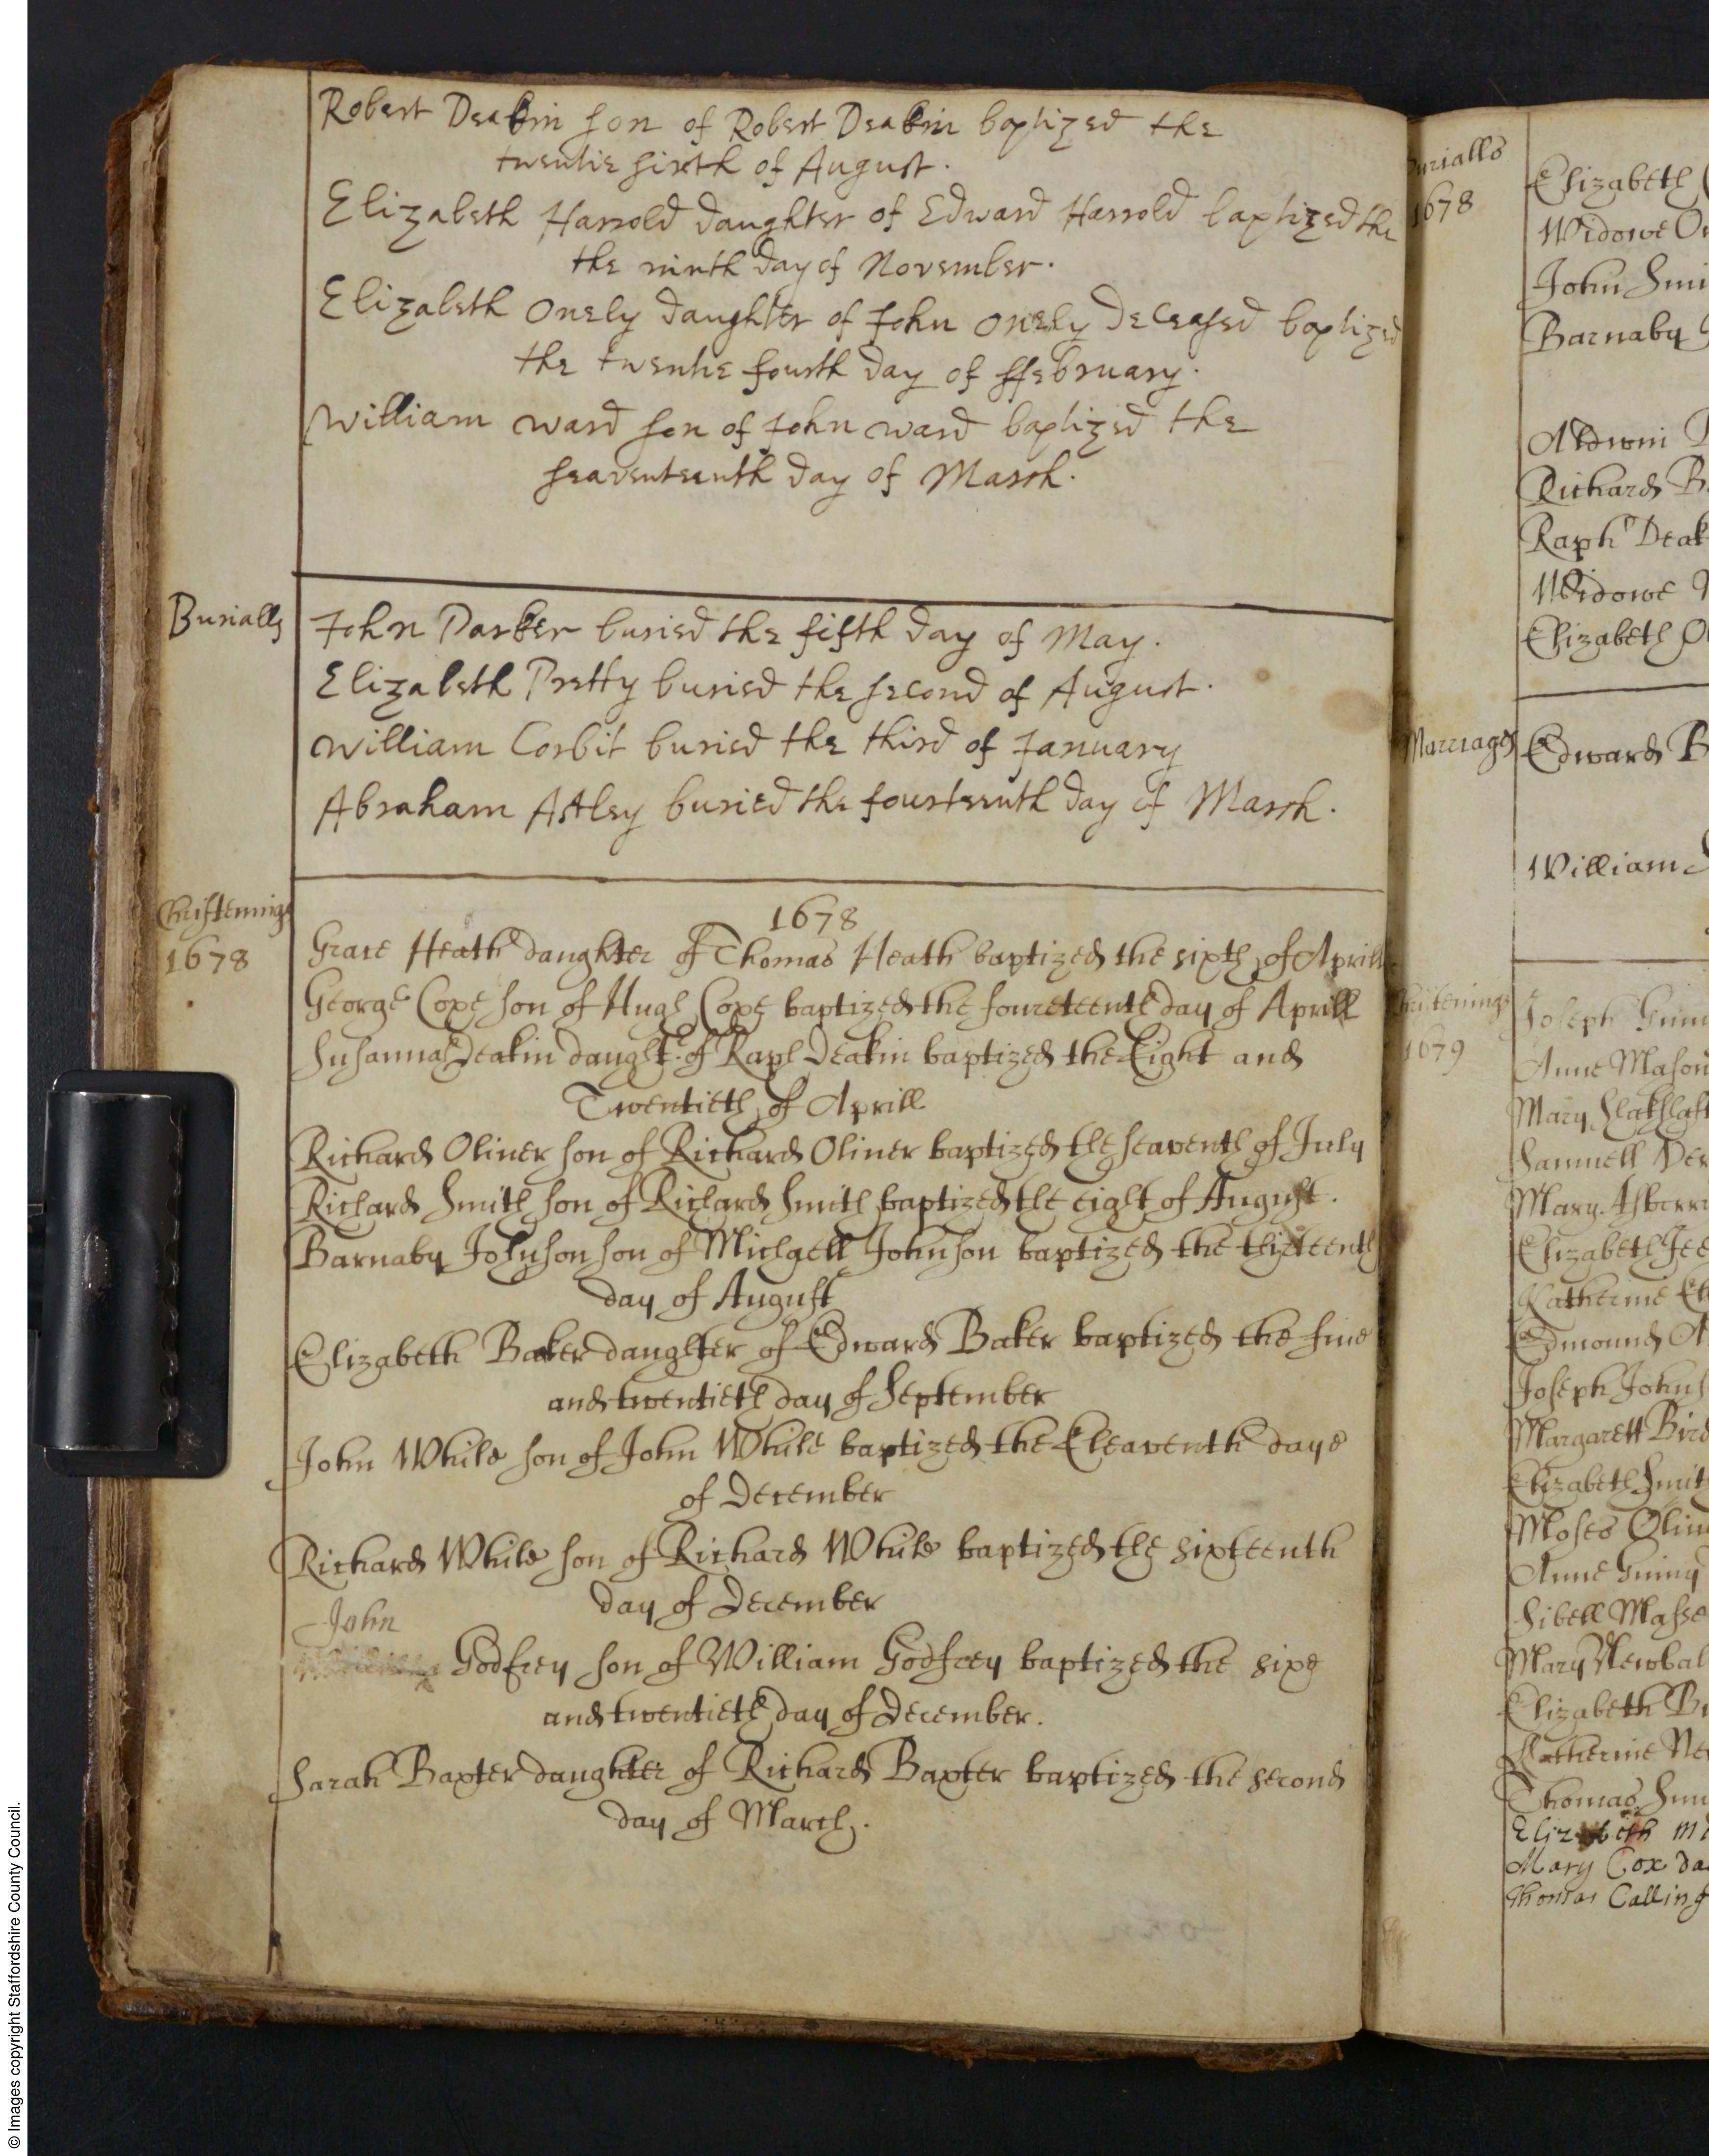 Robert Deakin son of Robert Deakin baptized the
twentie sixth of August.
Elizabeth Harrold daughter of Edward Harrold baptized the
the ninth day of November.
Elizabeth Onely daughter of John Onely deceased baptized
the twentie fourth day of ffebruary.
William Ward son of John Ward baptized the
seaventeenth day of March.
Burialls
John Parker buried the fifth day of May.
Elizabeth Pretty buried the second of August.
William Corbit buried the third of January
Abraham Astley buried the fourteenth day of March.
Christenings
1678
1678
Grace Heath daughter of Thomas Heath baptized the sixth of Aprill
George Cope son of Hugh Cope baptized the foureteenth day of Aprill
Susanna Deakin daught. of Raph Deakin baptized the Eight and
Twentieth of Aprill
Richard Oliuer son of Richard Oliuer baptized the seaventh of July
Richard Smith son of Richard Smith baptized the eight of August.
Barnaby Johnson son of Michaell Johnson baptized the thirteenth
day of August
Elizabeth Baker daughter of Edward Baker baptized the fiue
and twentieth day of September
John While son of John While baptized the Eleaventh daye
of December
Richard While son of Richard While baptized the sixteenth
day of December
John
Godfrey son of William Godfrey baptized the sixe
and twentieth day of December.
Sarah Baxter daughter of Richard Baxter baptized the second
day of March.
Burialls
1678
Elizabeth
Widowe
John Smi
Barnaby
Richard B
Raph Deak
Widowe
Elizabeth
Marriages
Edward B
William
1679
Joseph
Anne Mason
Mary
Samuell
Mary
Elizabeth
Katherine
Edmound
Joseph Johns
Margarett Bird
Elizabeth Smit
Moses Oliu
Anne
Sibell Masse
Mary Newbal
Elizabeth
Katherine
Thomas
Elizabeth
Mary Cox da
Thomas Calling
© Images copyright Staffordshire County Council.